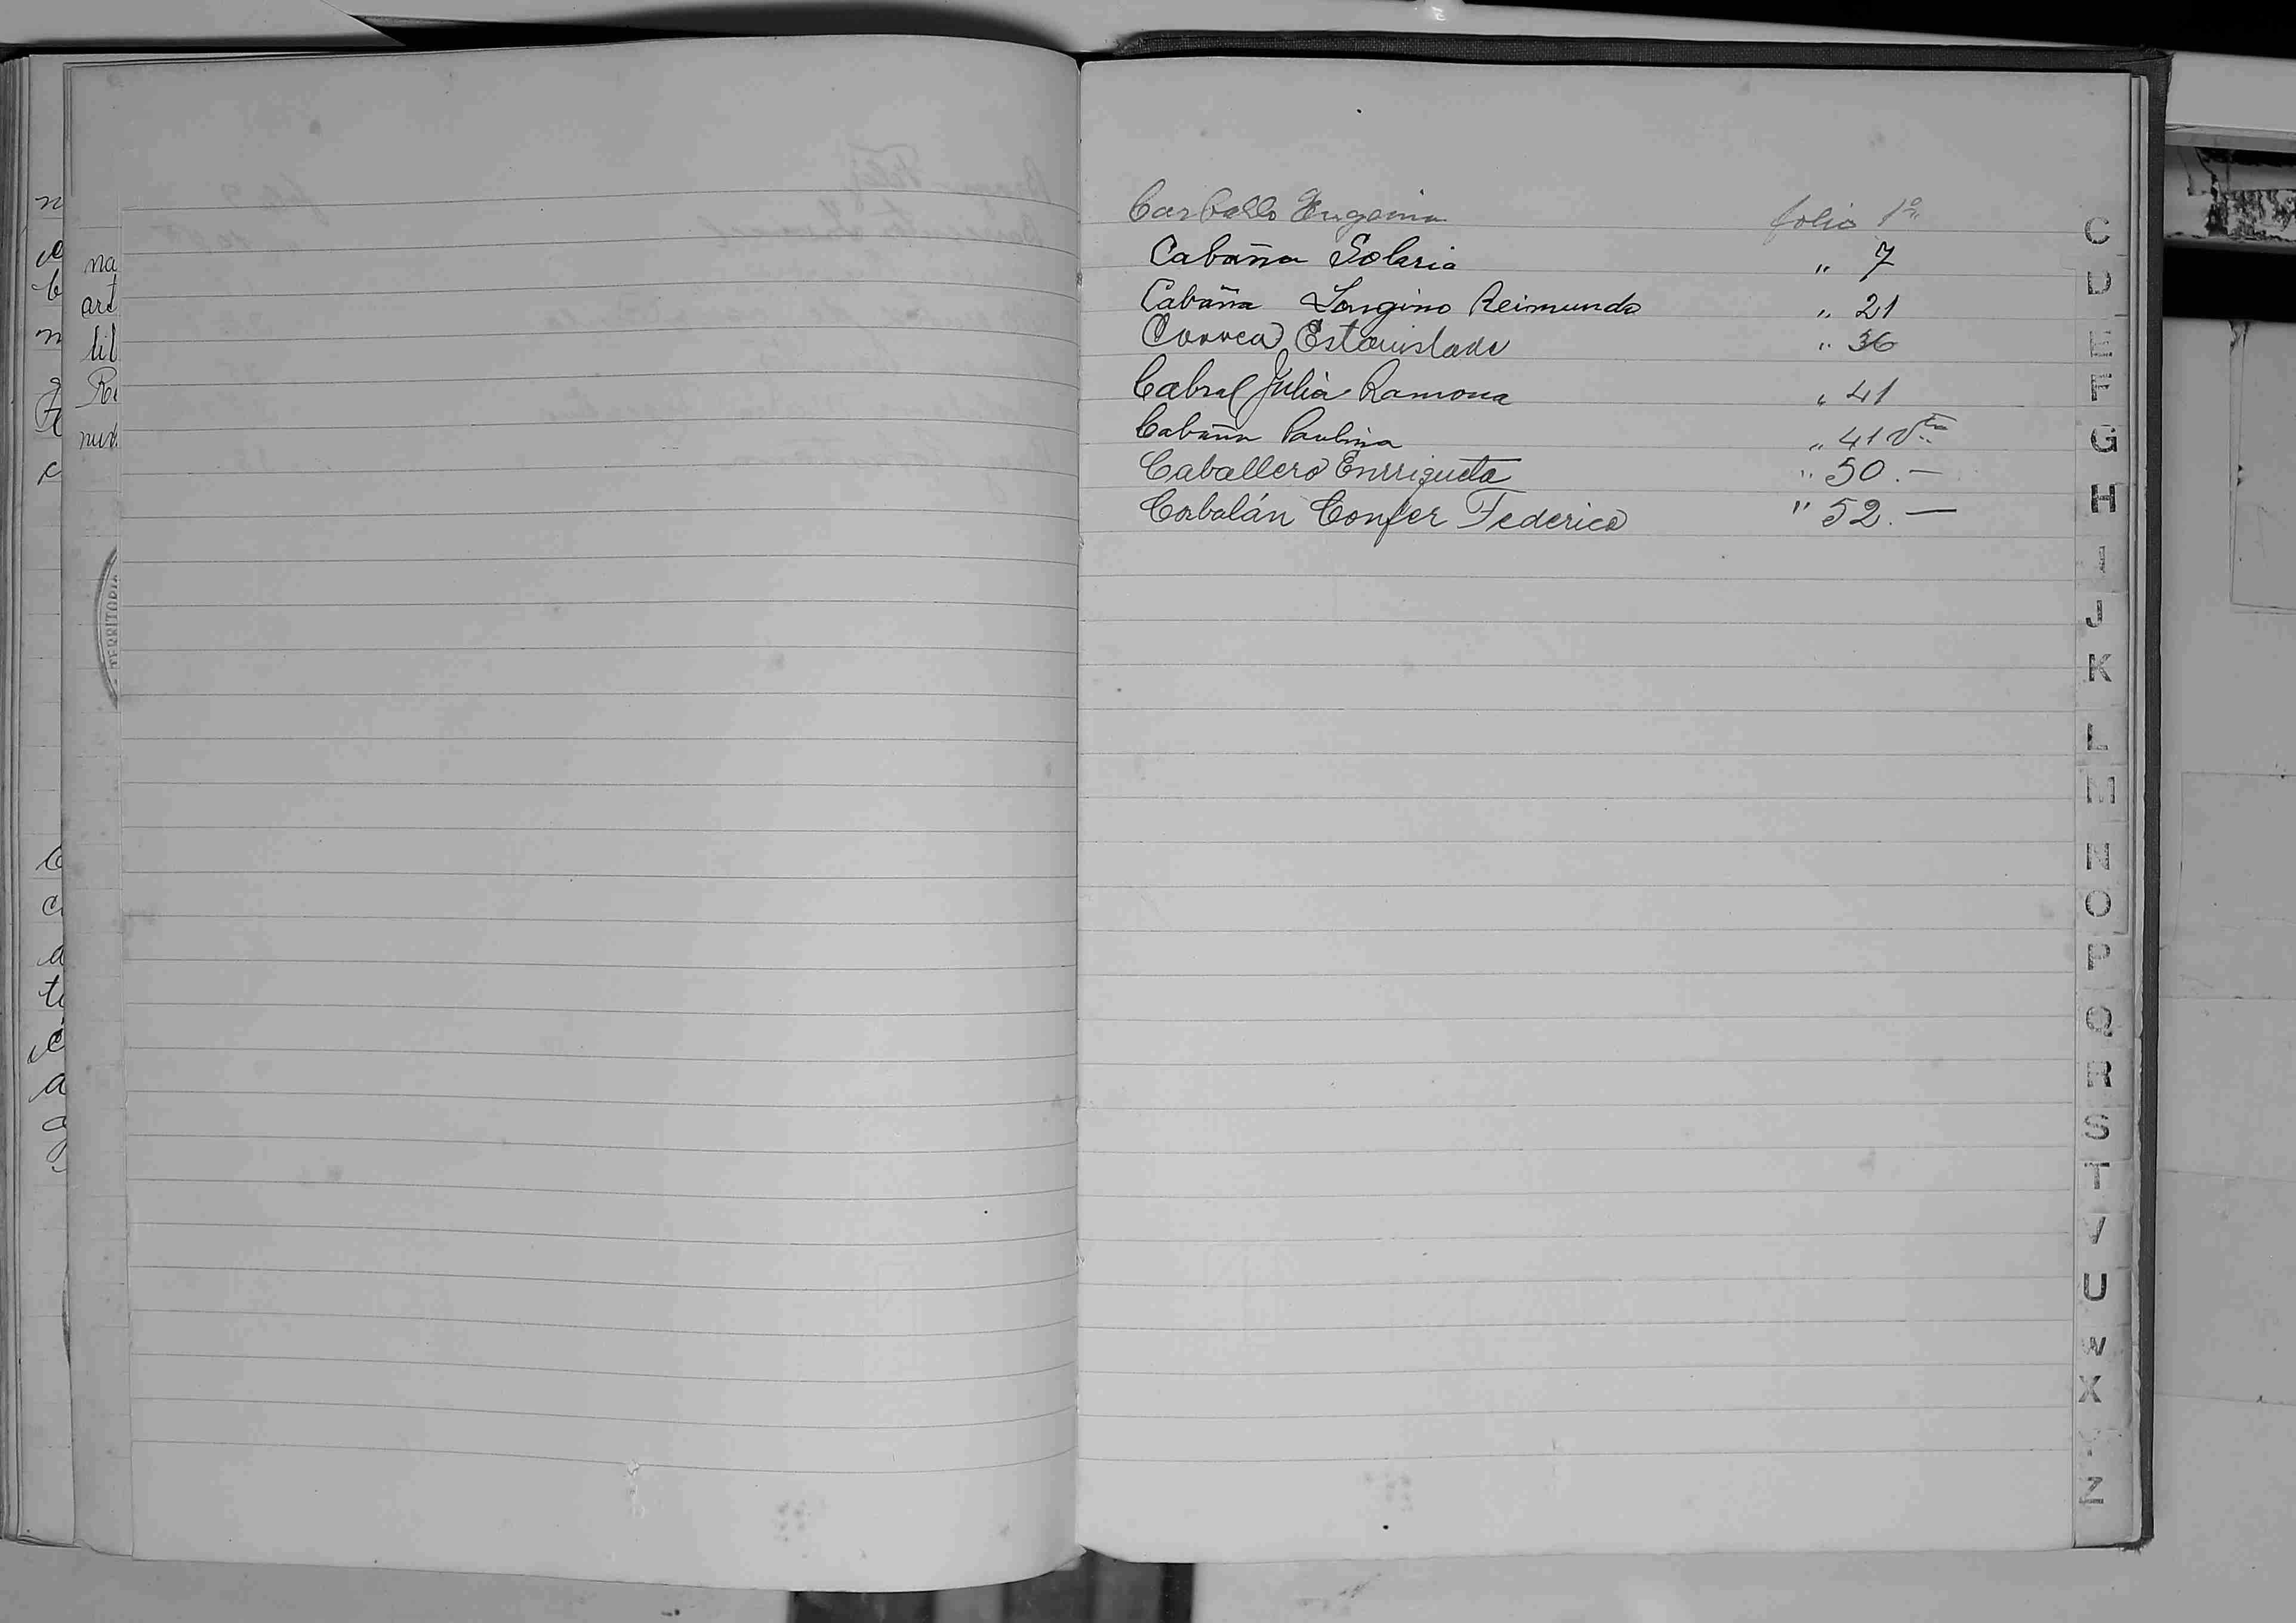 na
art
lil
Re
nux
TERRITORIA
Carballo Eugenia folio 1º
Cabaña Solaria " 7
Cabaña Longino Reimundo " 21
Correa Estanislada " 36
Cabral Julia Ramona " 41
Cabaña Paulina " 41 Vto
Caballero Enrriqueta " 50.—
Corbalán Confer Federico " 52.—
C
D
E
F
G
H
I
J
K
L
M
N
O
P
Q
R
S
T
V
U
W
X
Z